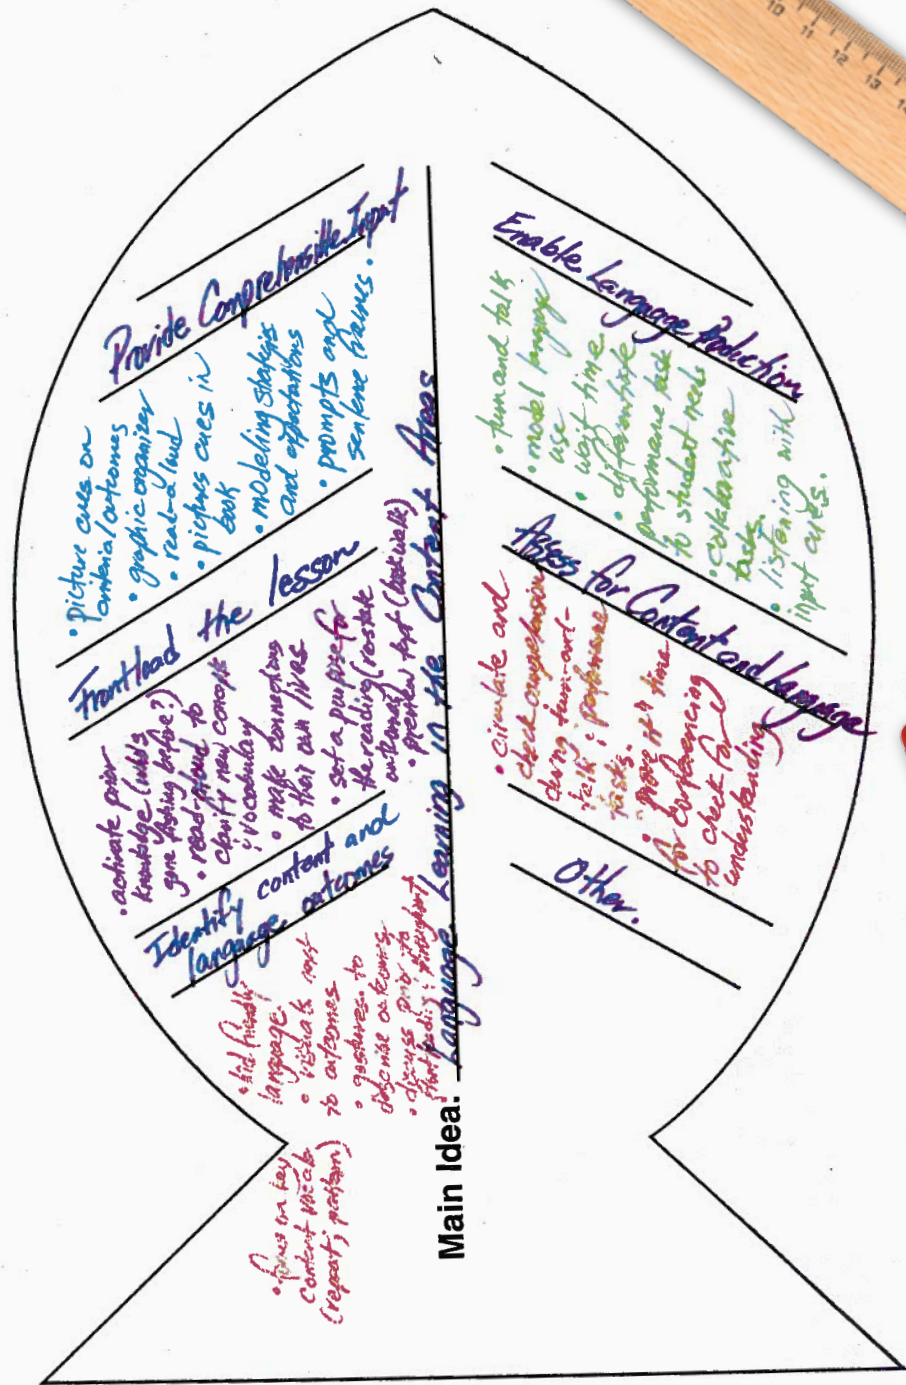 Main Idea: Language Learning in the Content Areas
Identify content and
language outcomes
• kid friendly
language
• visuals next
to outcomes
• gestures to
describe outcomes
• discuss prior to
reading & throughout
• focus on key
content vocab
(repeat;
Frontload the lesson
• activate prior
knowledge (who's
gone fishing before?)
• read-aloud to
clarify new concepts
& vocabulary
• make connections
to their own lives
• set a purpose for
the reading (restate
outcomes)
• preview text (book walk)
Provide Comprehensible Input
• picture cues on
criteria/outcomes
• graphic organizer
• read-aloud
• pictures cues in
book
• modeling strategies
and expectations
• prompts and
sentence frames.
Enable Language Production
• turn and talk
• model language
use
• wait time
• differentiate
performance task
to student needs
• collaborative
tasks.
• listening with
input cues.
Assess for Content and Language
• circulate and
check comprehension
during turn-and-
talk & performance
tasks.
• more 1:1 time
for conferencing
to check for
understanding
Other.
10
11
12
13